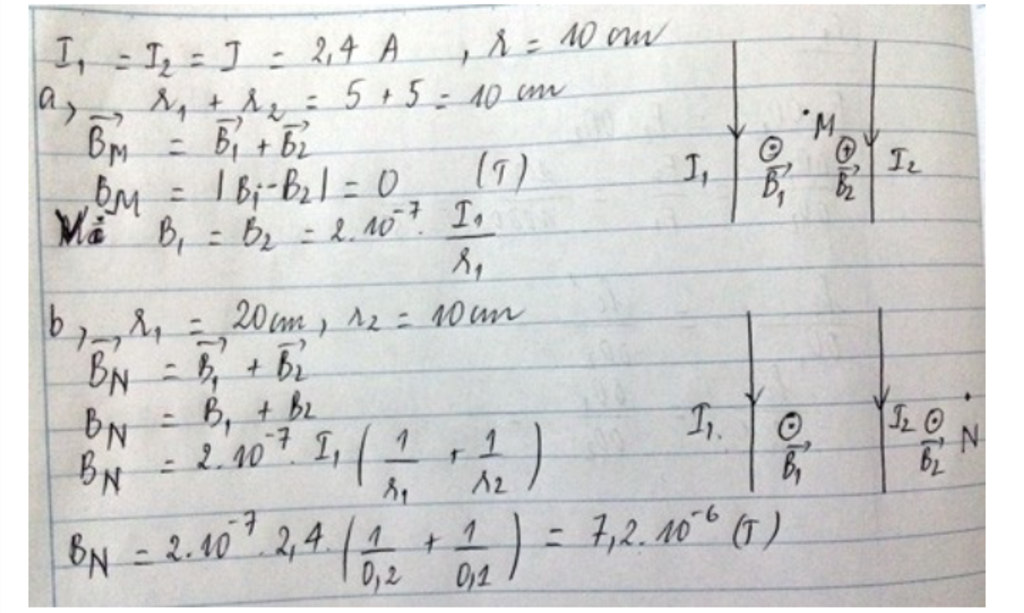 I₁ = I₂ = I = 2,4 A , r = 10 cm
a, r₁ + r₂ = 5 + 5 = 10 cm
B⃗_M = B⃗₁ + B⃗₂
B_M = |B₁ - B₂| = 0 (T)
Mà B₁ = B₂ = 2.10⁻⁷. I₁/r₁
.M
I₁ ⊙ B⃗₁ ⊕ B⃗₂ I₂
b, r₁ = 20cm, r₂ = 10cm
B⃗_N = B⃗₁ + B⃗₂
B_N = B₁ + B₂
B_N = 2.10⁻⁷. I₁ (1/r₁ + 1/r₂)
B_N = 2.10⁻⁷.2,4.(1/0,2 + 1/0,1) = 7,2.10⁻⁶ (T)
I₁. ⊙ B⃗₁ I₂ ⊙ B⃗₂ N